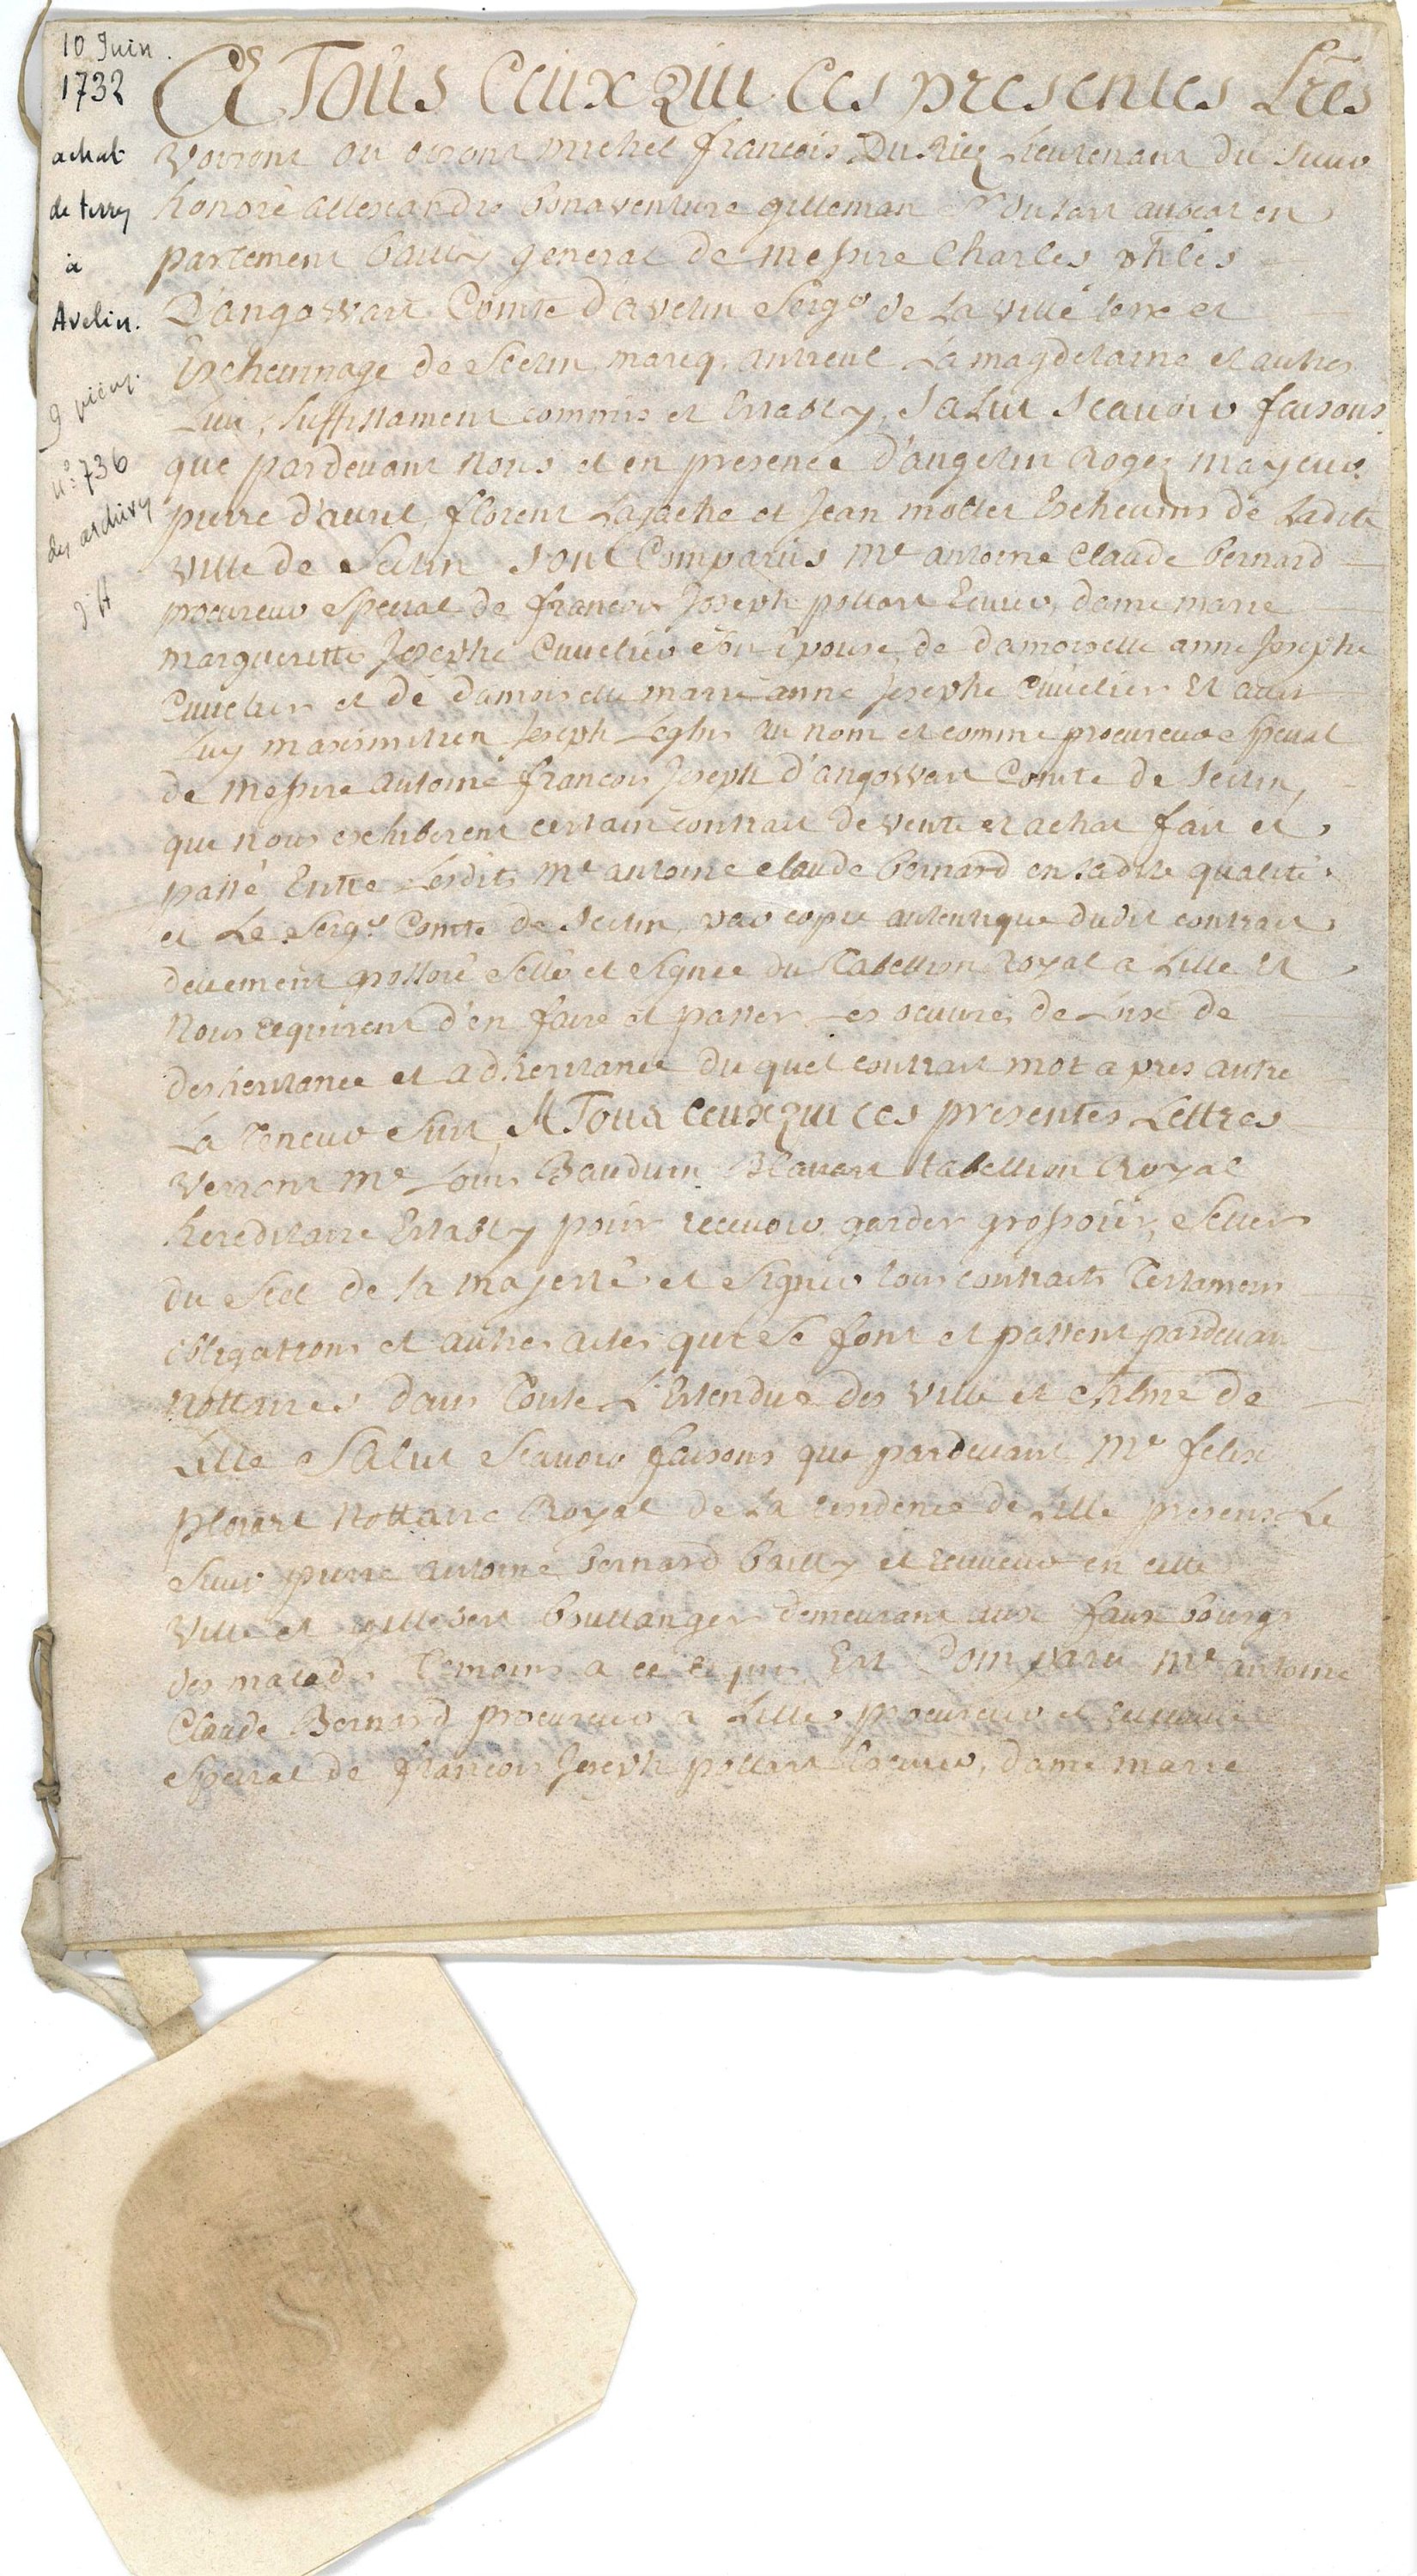 10 Juin
1732
achat
de terres
à
Avelin.
9 pièces.
n° 736
des archives
A Tous Ceux Qui Ces presentes Lres
Voiront ou oiront Michel francois Du Riez Lieutenant du Sieur
honoré allexandre bonaventure gilleman avocat en
parlement bailly general de messire Charles phles
D'angoswart Comte d'avelin Seigr de La ville terre et
Eschevinage de Seclin, marcq, antreul La magdelaine et autres
Lieu, suffissament commis et Establÿ, Salut scavoir faisons
que pardevant nous et en presence d'angelin Rogez mayeur
pierre d'auril, florent Lagache et Jean mollet Eschevins de Ladite
ville de Seclin sont Comparus Me antoine Claude Bernard
procureur special de francois Joseph pollart Ecuier, dame marie
margueritte Josephe Cuvelier son Epouse, de damoiselle anne Josephe
Cuvelier et de damoiselle marie anne Josephe Cuvelier Et avec
Luy maximilien Joseph Leghis au nom et comme procureur special
de Messire antoine francois Joseph d'angoswart Comte de Seclin,
que nous exhiberent certain contract de vente et achat fait et
passé Entre Lesdits Me antoine claude bernard en Ladite qualité
et Le Seigr Comte de Seclin, par copie autentique dudit contract
deuement grossoié Sellé et Signée du Tabellion Royal a Lille Et
Nous requirent d'en faire et passer Les oeuvres de Loix de
desheritance et adheritance duquel contract mot apres autre
La Teneur Suit, A Tous ceux qui ces presentes Lettres
Verront Me Louis Bauduin tabellion Royal
hereditaire Establÿ pour recevoir garder grossoier, Seller
du Seel de sa majesté et Signer tous contracts Testamens
obligations et autres actes qui se font et passent pardevant
Nottaires dans Toute L'Estendue des ville et chlnie de
Lille Salut scavoir faisons que pardevant Me felix
Nottaire Royal de La residence de Lille presens Le
Sieur pierre antoine bernard bailly et receveur en cette
Ville et gillebert boullanger demeurant aux fauxbourg
des malades Temoins a ce requis Est Comparu Me antoine
Claude Bernard procureur a Lille procureur et receveur
special de francois Joseph pollart Ecuier, dame marie